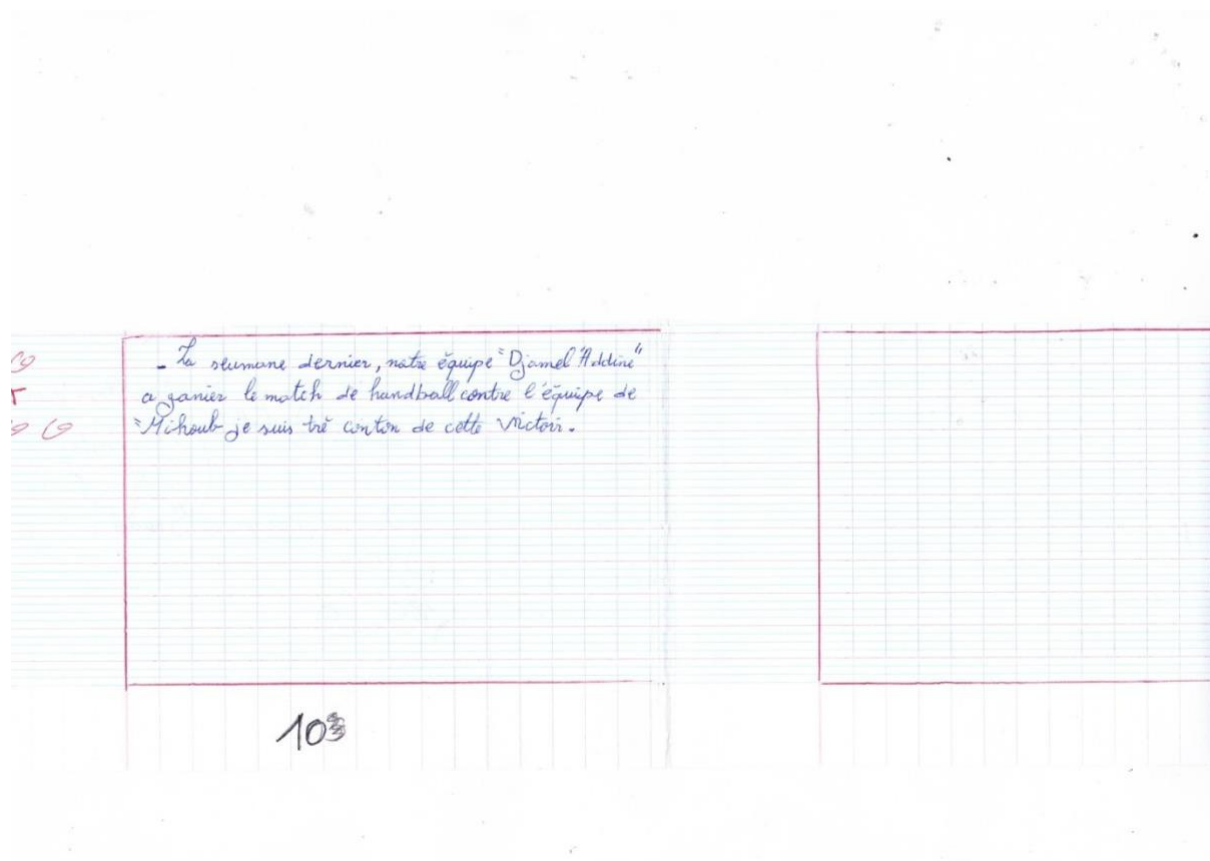 - La seumane dernier, notre équipe "Djamel Addine"
a ganier le match de handball contre l'équipe de
"Mihoub je suis trê conton de cette victoir.
10